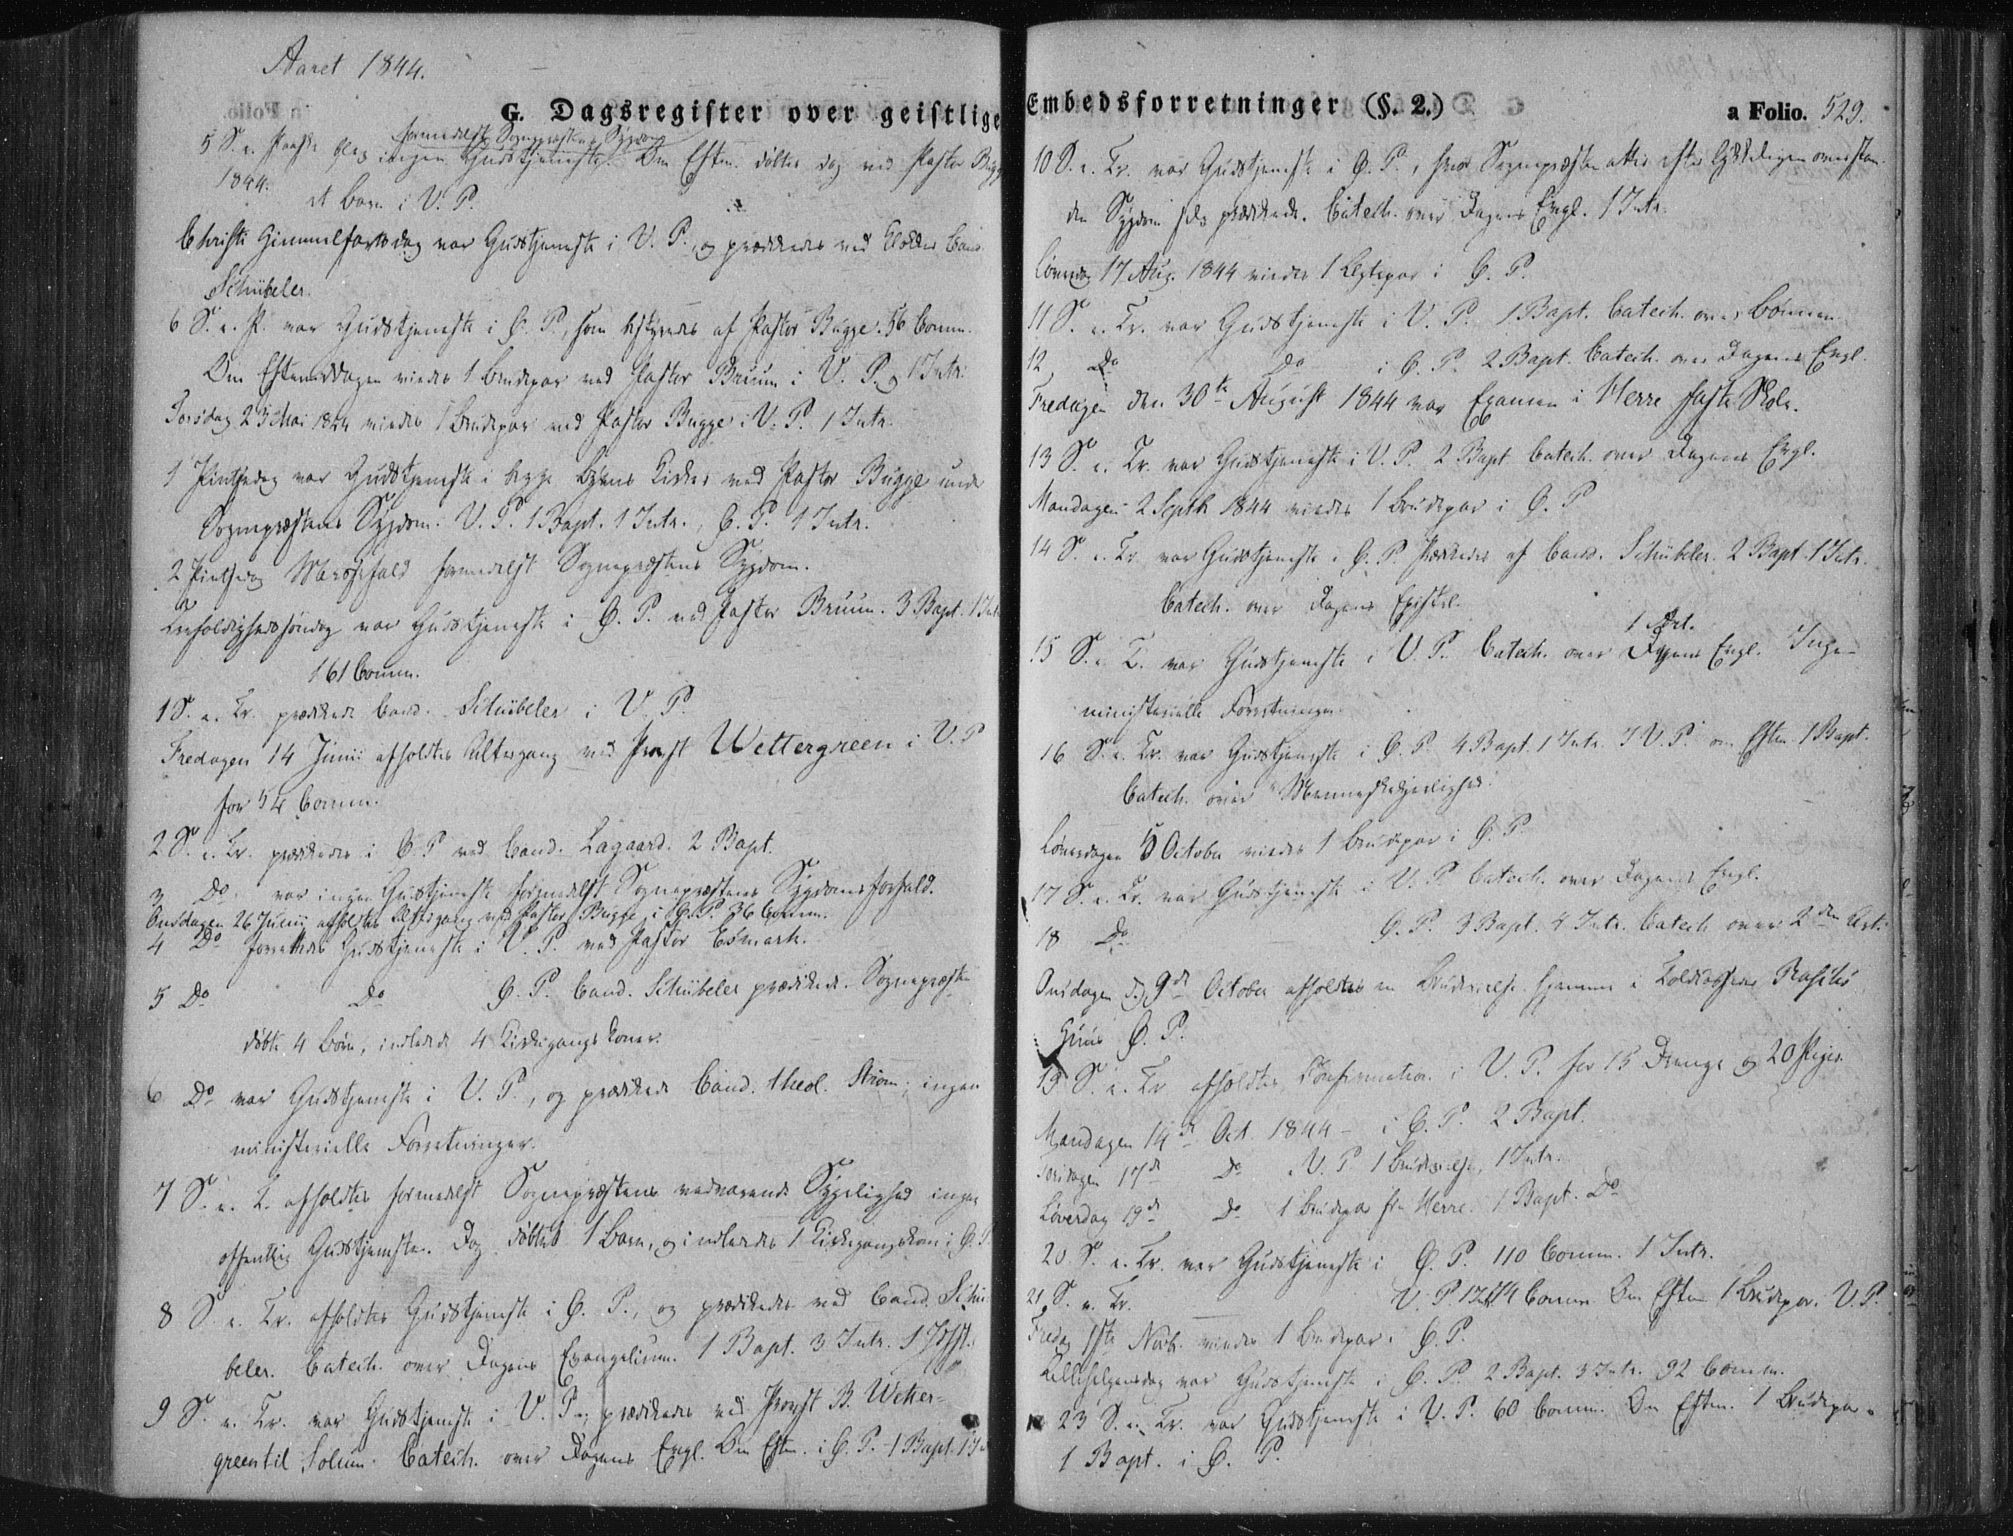 Aaret 1844.
G. Dagsregister over geistlige
5 S. e. Paaske blev ingen Gudstjeneste formedelst Sognepræstens Sygdom. Om Eftm. døbtes dog ved Pastor Bugge
1844. et Barn i V. P.
Christi Himmelfartsdag var Gudstjeneste i V. P., og prædikedes ved Klokker Cand.
Schübeler.
6 S. e. P. var Gudstjeneste i Ø. P., som bestyredes af Pastor Bugge. 56 Comm.
Om Eftermiddagen viedes 1 Brudepar ved Pastor Bruun i V. P. 1 Intr.
Torsdag 23 Mai 1844 viedes 1 Brudepar ved Pastor Bugge i V. P. 1 Intr.
1 Pintsedag var Gudstjeneste i begge Byens Kirker ved Pastor Bugge under
Sognepræstens Sygdom. V. P. 1 Bapt. 1 Intr., Ø. P. 1 Intr.
2 Pintsedag Messefald formedelst Sognepræstens Sygdom.
Trefoldighedssøndag var Gudstjeneste i Ø. P. ved Pastor Bruun. 3 Bapt. 1 Intr.
161 Comm.
1 S. e. Tr. prædikede Cand. Schübeler i V. P.
Fredagen 14 Junii afholdtes Altergang ved Provst Wettergreen i V. P.
for 54 Comm.
2 S. e. Tr. prædikedes i Ø. P. ved Cand. Lagaard. 2 Bapt.
3 Do var ingen Gudstjeneste formedelst Sognepræstens Sygdomsforfald.
Onsdagen 26 Junij afholdtes Altergang ved Pastor Bugge i Ø. P. 36 Comm.
4 Do forrettedes Gudstjeneste i V. P. ved Pastor Esmark.
5 Do Do Ø. P. Cand. Schübeler prædikede. Sognepræsten
døbte 4 Børn, indledede 4 Kirkegangskoner.
6 Do var Gudstjeneste i V. P., og prædikede Cand. theol. Strøm; ingen
ministerielle Forretninger.
7 S. e. T. afholdtes formedelst Sognepræstens vedvarende Sygelighed ingen
offentlig Gudstjeneste. Dog døbtes 1 Barn, og indledes 1 Kirkegangskone i Ø. P.
8 S. e. Tr. afholdtes Gudstjeneste i Ø. P., og prædikedes ved Cand. Schü-
beler. Catech. over Dagens Evangelium. 1 Bapt. 3 Intr.
9 S. e. Tr. var Gudstjeneste i V. P., prædikedes ved Provst B. Wetter-
green til Solum. Catech. over Dagens Evgl. Om Eftm. i Ø. P. 1 Bapt. 1 Intr.
Embedsforretninger (§. 2.)
a Folio. 529.
10 S. e. Tr. var Gudstjeneste i Ø. P., hvor Sognepræsten atter efter lykkeligen overstan-
den Sygdom selv prædikede. Catech. over Dagens Evgl. 1 Intr.
Løverdag 17 Aug. 1844 viedes 1 Ægtepar i Ø. P.
11 S. e. Tr. var Gudstjeneste i V. P. 1 Bapt. Catech. over Bønnen.
12 Do Do i Ø. P. 2 Bapt. Catech. over Dagens Evgl.
Fredagen den 30te August 1844 var Examen i Herre faste Skole.
13 S. e. Tr. var Gudstjeneste i V. P. 2 Bapt. Catech. over Dagens Evgl.
Mandagen 2 Septb. 1844 viedes 1 Brudepar i Ø. P.
14 S. e. Tr. var Gudstjeneste i Ø. P. Prædikedes af Cand. Schübeler. 2 Bapt. 1 Intr.
Catech. over Dagens Epistel.
15 S. e. T. var Gudstjeneste i V. P. Catech. over 1 Art. Inge-
ministerielle Forretninger.
16 S. e. Tr. var Gudstjeneste i Ø. P. 4 Bapt. 1 Intr. I V. P. om Eftm. 1 Bapt.
Catech. over "Menneskekjerlighed".
Løverdagen 5 October viedes 1 Brudepar i Ø. P.
17 S. e. Tr. var Gudstjeneste i V. P. Catech. over Dagens Evgl.
18 Do Ø. P. 3 Bapt. 4 Intr. Catech. over 2den Art.
Onsdagen d. 9de October afholdtes en Brudevielse hjemme i Toldcasserer
Huus Ø. P.
19 S. e. Tr. afholdtes Confirmation i V. P. for 15 Drenge og 20 Piger.
Mandagen 14de Oct. 1844 - i Ø. P. 2 Bapt.
Torsdagen 17de Do V. P. 1 Brudevielse, 1 Intr.
Løverdag 19de Do 1 Brudepar fra Herre. 1 Bapt. Do
20 S. e. Tr. var Gudstjeneste i Ø. P. 110 Comm. 1 Intr.
21 S. e. Tr. V. P. Comm. Om Eftm. 1 Brudepar. V. P.
Fredag 1ste Novb. viedes 1 Brudepar i Ø. P.
Allehelgensdag var Gudstjeneste i Ø. P. 2 Bapt. 3 Intr. 92 Comm.
23 S. e. Tr. var Gudstjeneste i V. P. 60 Comm. Om Eftm. 1 Brudepar
1 Bapt. i Ø. P.